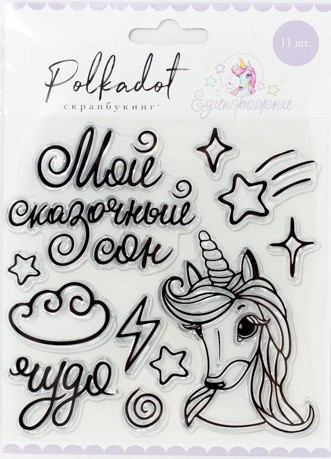 Polkadot
скрапбукинг
11 шт.
Единорожки
Мой
сказочный
сон
чудо